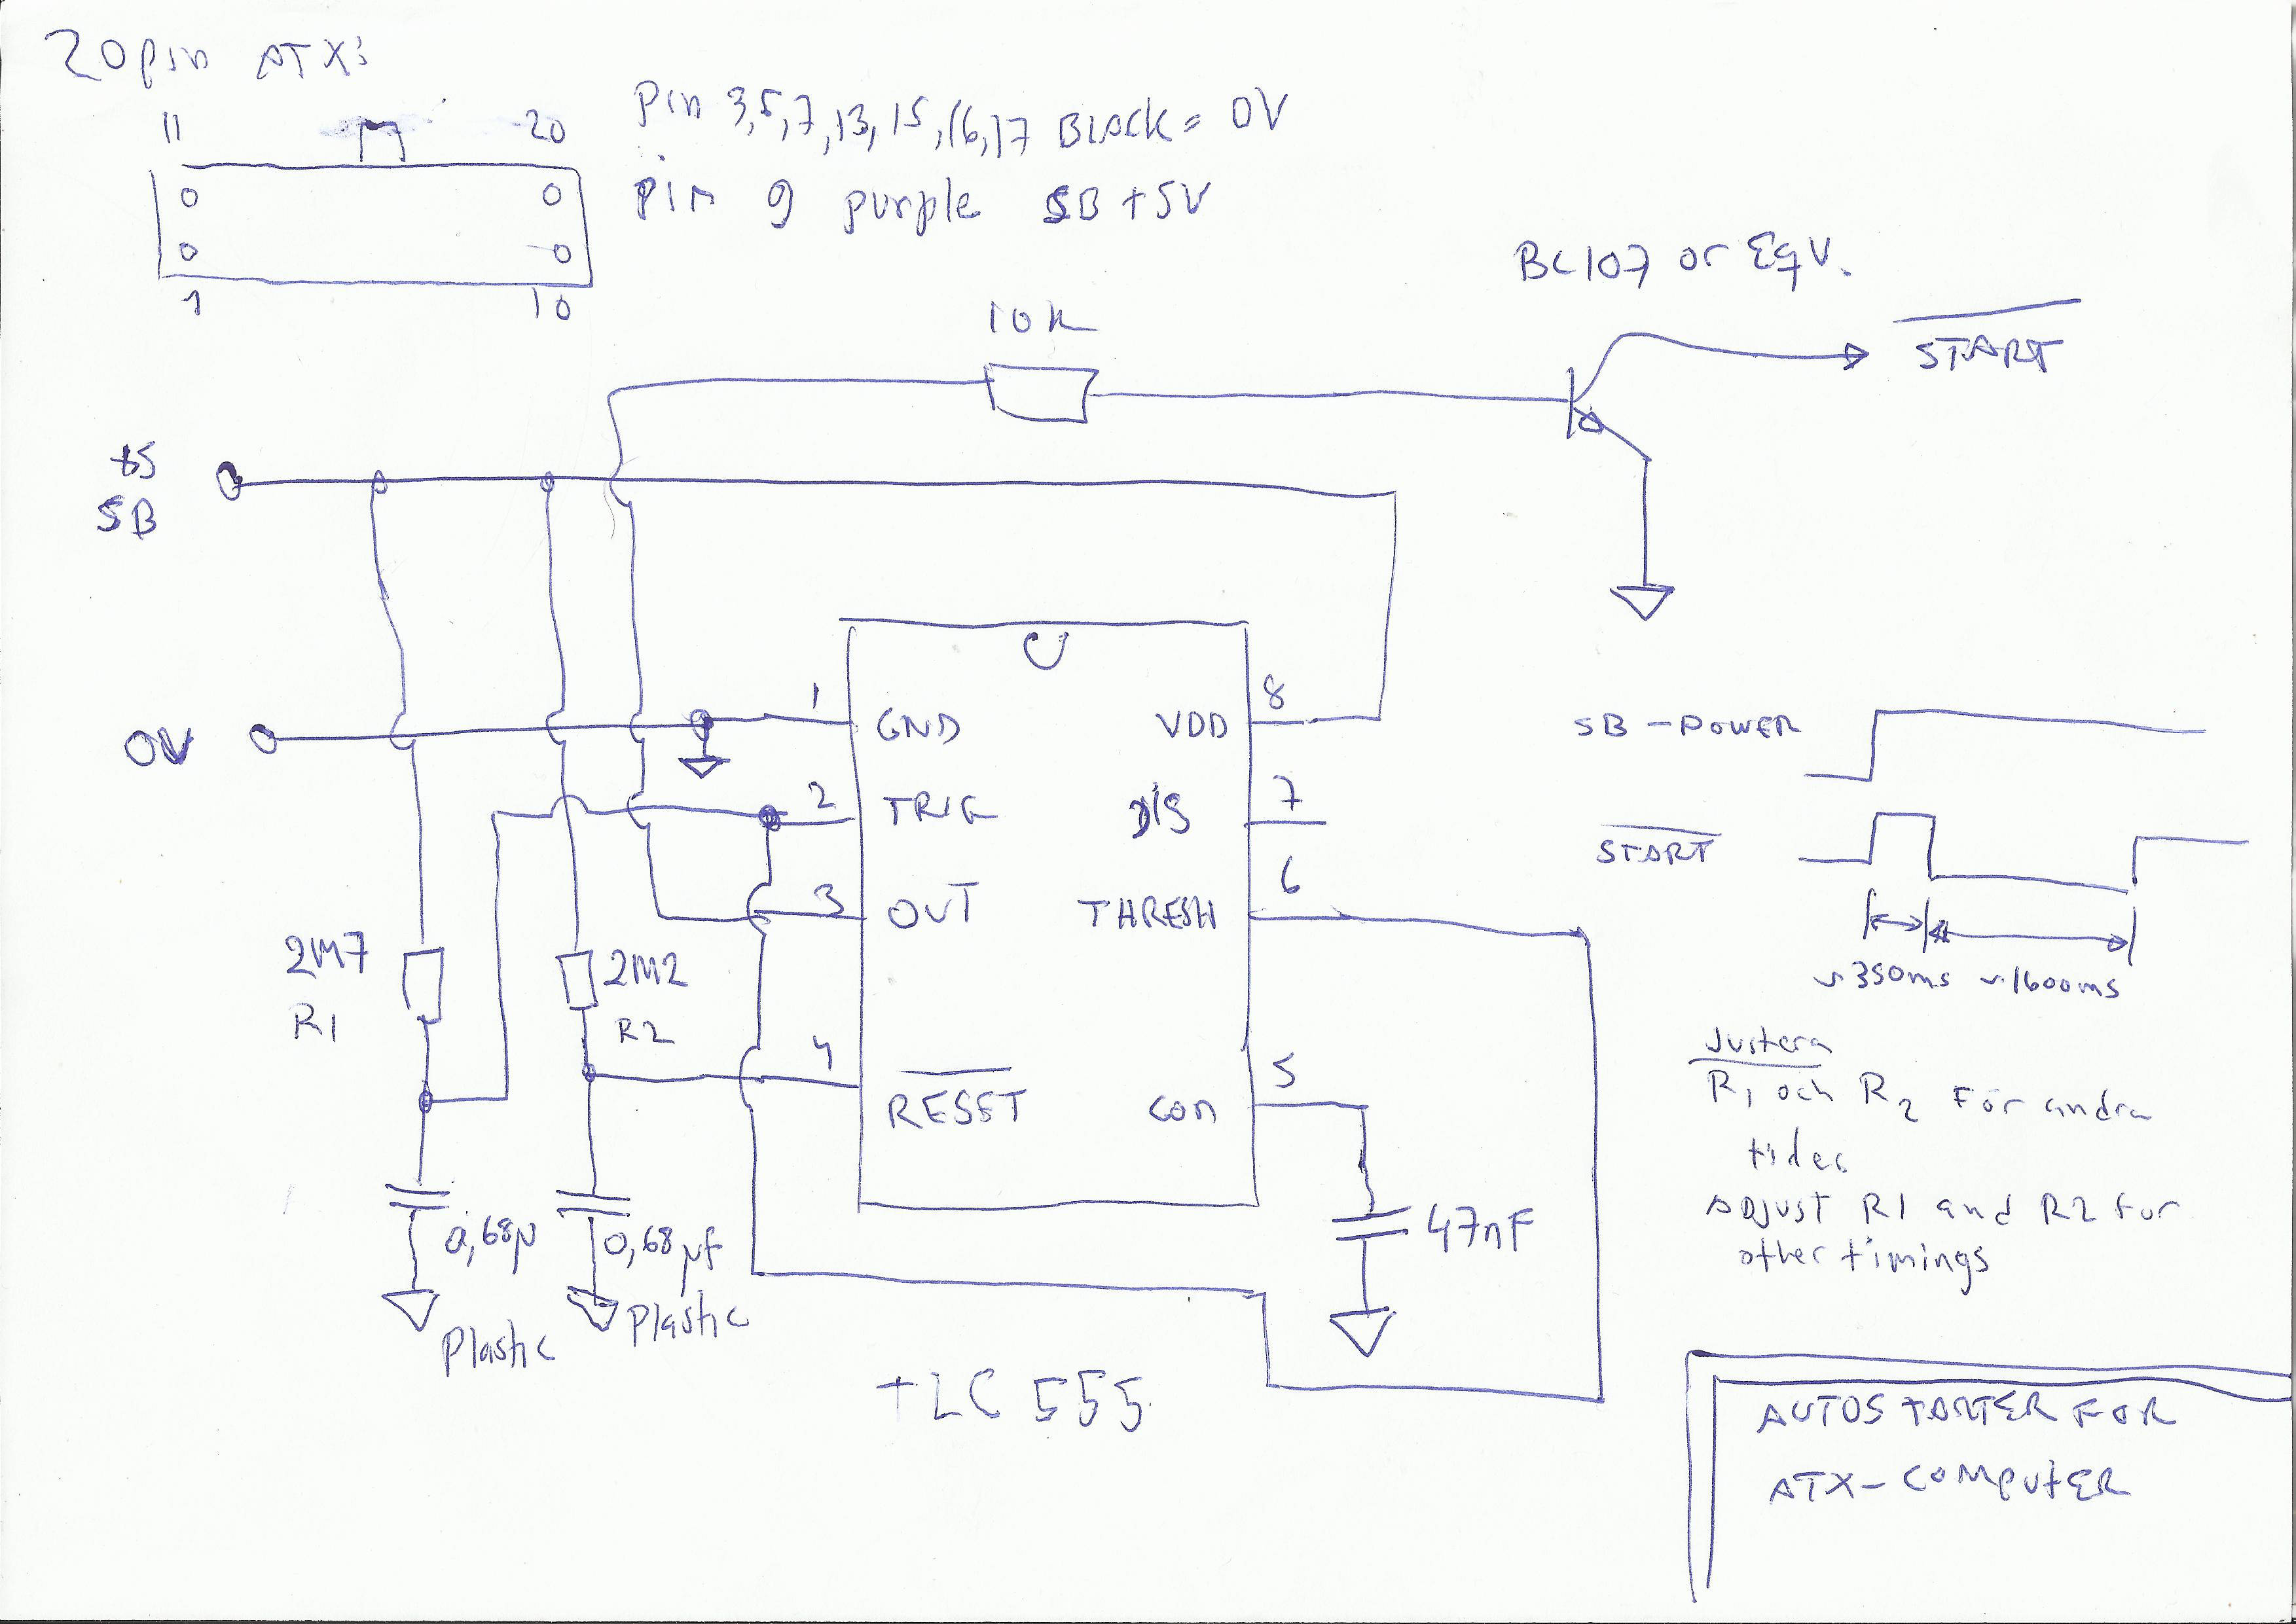 20pin ATX:
11 20
1 10
Pin 3,5,7,13,15,16,17 Black = 0V
Pin 9 purple SB +5V
BC107 or Eqv.
10K
START
+5
SB
0V
1 GND VDD 8
2 TRIG DIS 7
3 OUT THRESH 6
4 RESET CON 5
2M7
R1
2M2
R2
0,68µ
Plastic
0,68µF
Plastic
47nF
TLC 555
SB-POWER
START
~350ms ~1600ms
Justera
R1 och R2 för andra
tider
ADJUST R1 and R2 for
other timings
AUTOSTARTER FOR
ATX-COMPUTER